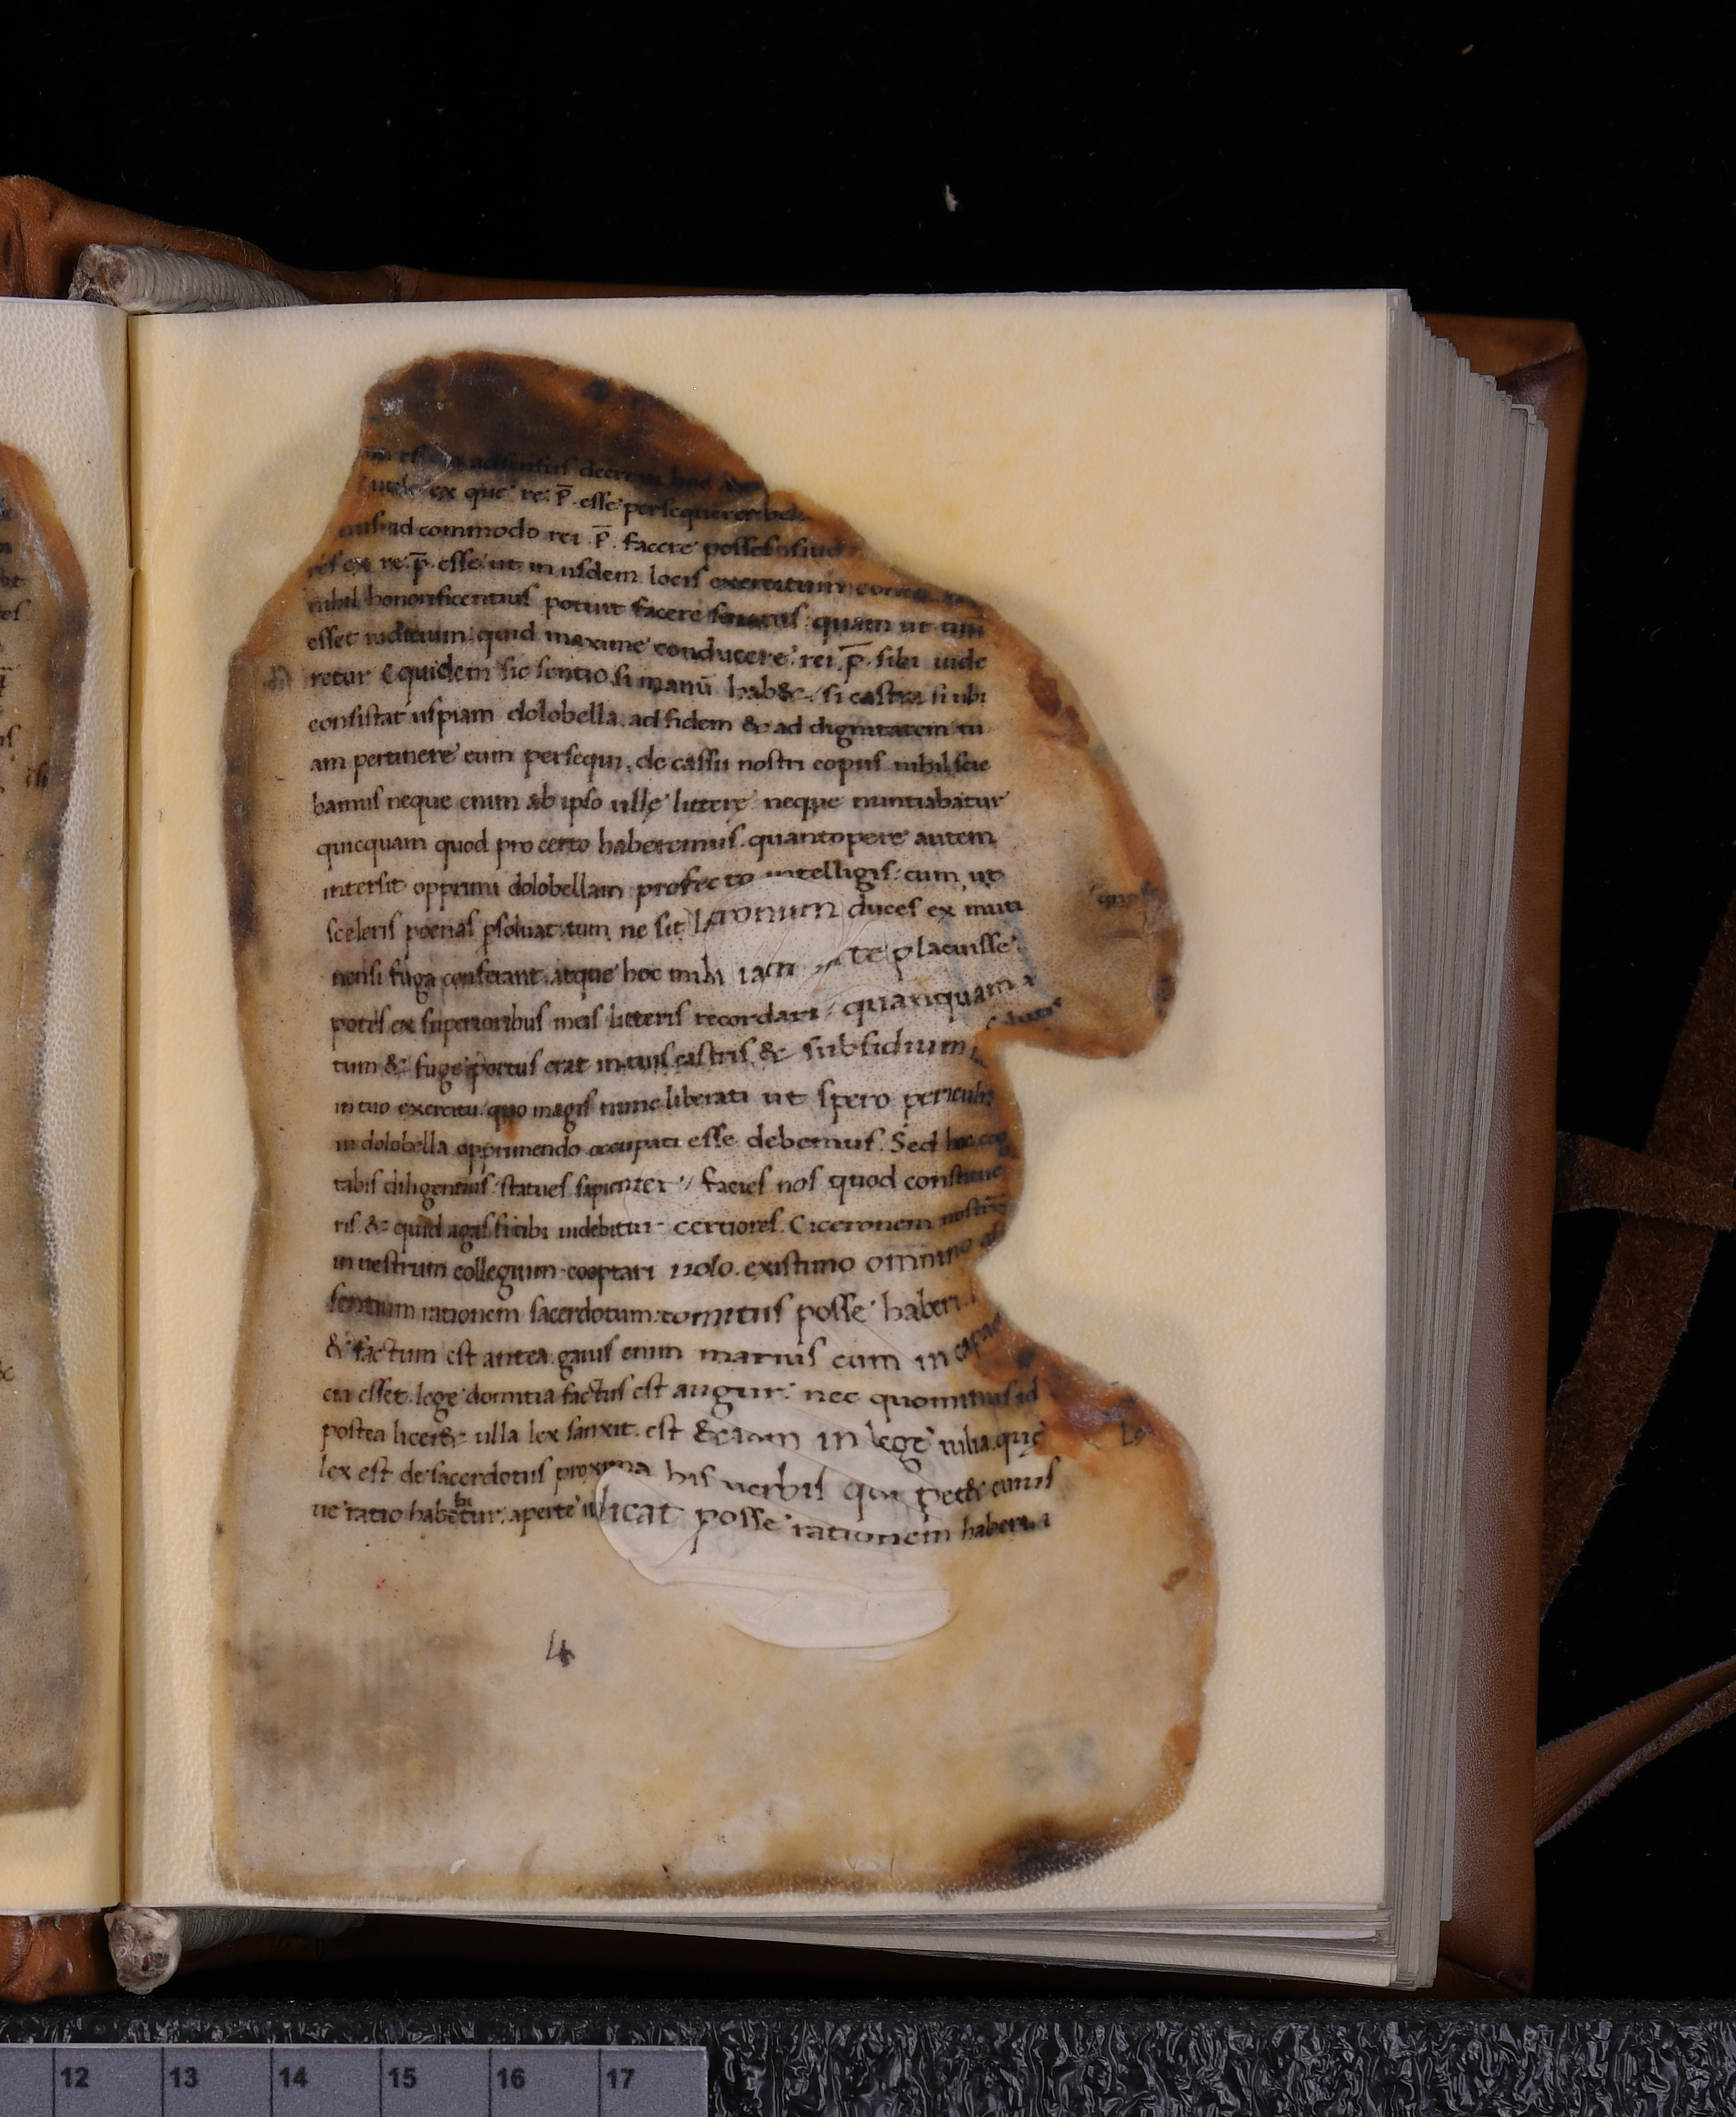 adsensus decre
ex que re p̄ esse persequerer bel
commodo rei p̄. facere posses
res ex re p̄ esse ut in iisdem locis exercitum
nihil honorificentius potuit facere senatus quam ut tuū
esset iudicium quid maxime conducere rei p̄. sibi uide
retur Equidem sic sentio si manū hab& si castra si ubi
consistat uspiam dolobella. ad fidem & ad dignitatem tu
am pertinere eum persequi. de cassii nostri copiis nihil scie
bamus neque enim ab ipso ullę litterę neque nuntiabatur
quicquam quod pro certo haberemus. quantopere autem
intersit opprimi dolobellam profecto intelligis cum ut
sceleris poenas psoluat tum ne sit latronum duces ex muti
nensi fuga conferant. atque hoc mihi iam te placuisse
potes ex superioribus meis litteris recordari quanquam
tum & fugę portus erat in tuis castris & subsidium
in tuo exercitu quo magis nunc liberati ut spero periculis
in dolobella opprimendo occupati esse debemus. Sed hoc cog
tabis diligentius statues sapienter facies nos quod constitue
ris & quid agas si tibi uidebitur certiores. Ciceronem nostrū
in uestrum collegium cooptari uolo. existimo omnino ab
sentium rationem sacerdotum comitiis posse haberi.
& factum est antea gaius enim marius cum in capad
cia esset lege domitia factus est augur nec quominus id
postea licer& ulla lex sanxit. est &iam in lege iulia quę
lex est de sacerdotiis proxima his uerbis qui pet& cuius
ue ratio habebitur. aperte iudicat posse rationem haberi
4